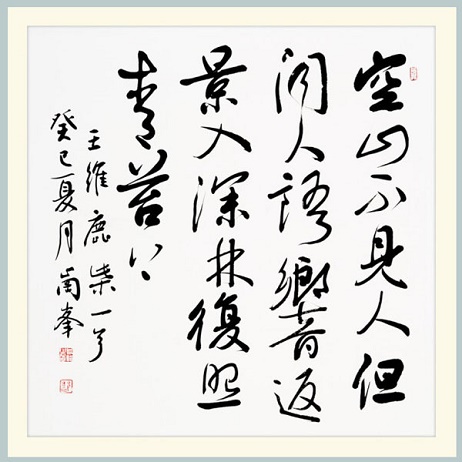 空山不見人但
聞人語響返
景入深林復照
青苔上
王維鹿柴一首
癸巳夏月